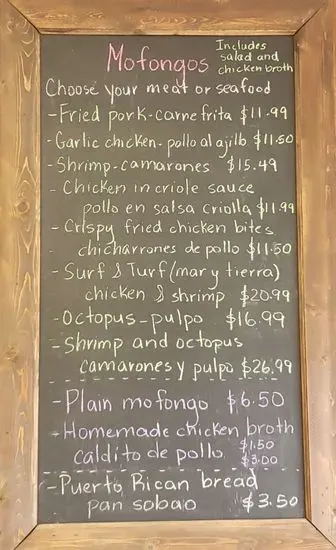 Mofongos
Includes
salad and
chicken broth
Choose your meat or seafood
- Fried pork - carne frita $11.99
- Garlic chicken - pollo al ajillo $11.50
- Shrimp - camarones $15.49
- Chicken in criole sauce
pollo en salsa criolla $11.99
- Crispy fried chicken bites
- chicharrones de pollo $11.50
- Surf & Turf (mar y tierra)
chicken & shrimp $20.99
- Octopus - pulpo $16.99
- Shrimp and octopus
camarones y pulpo $26.99
- Plain mofongo $6.50
- Homemade chicken broth
caldito de pollo $1.50
$3.00
- Puerto Rican bread
pan sobao $3.50